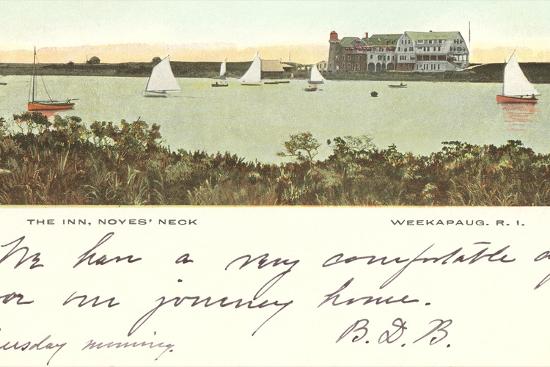 THE INN, NOYES' NECK WEEKAPAUG. R. I.
We have a very comfortable
our journey home.
B. D. B.
morning.